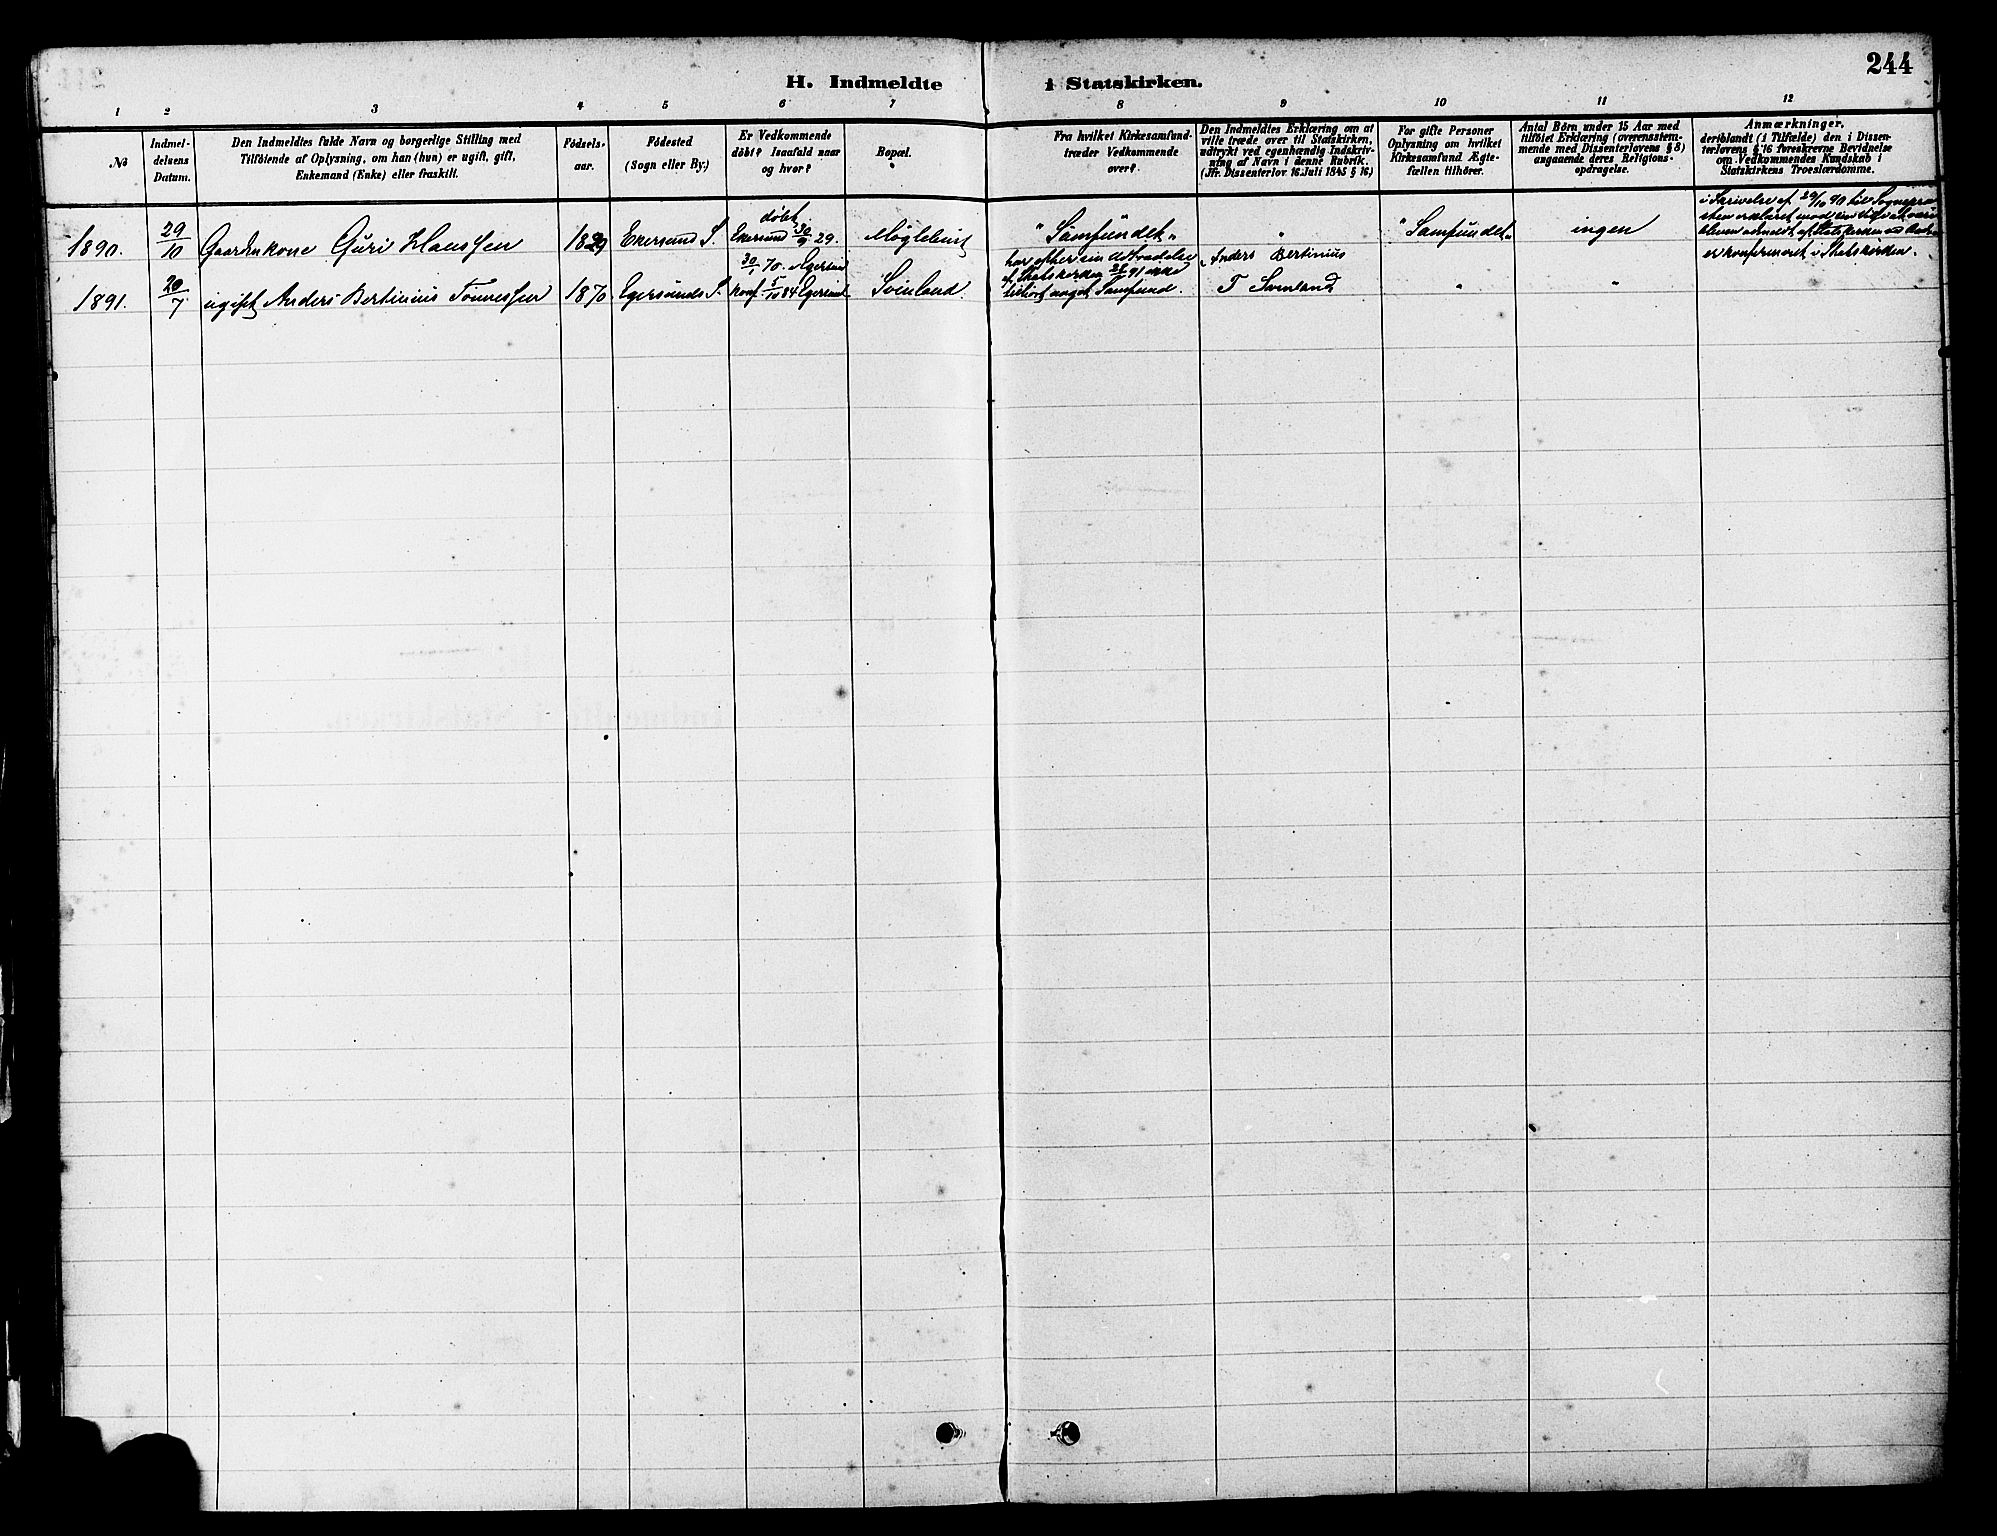 244
H. Indmeldte i Statskirken.
1 2 3 4 5 6 7 8 9 10 11 12
No
Indmel-
delsens
Datum.
Den Indmeldtes fulde Navn og borgerlige Stilling med
Tilföiende af Oplysning, om han (hun) er ugift, gift,
Enkemand (Enke) eller fraskilt.
Födsels-
aar.
Födested
(Sogn eller By.)
Er Vedkommende
döbt? Isaafald naar
og hvor?
Bopæl.
Fra hvilket Kirkesamfund
træder Vedkommende
over?
Den Indmeldtes Erklæring om at
ville træde over til Statskirken,
udtrykt ved egenhændig Indskriv-
ning af Navn i denne Rubrik.
(Jfr. Dissenterlov 16. Juli 1845 § 16.)
For gifte Personer
Oplysning om hvilket
Kirkesamfund Ægte-
fællen tilhörer.
Antal Börn under 15 Aar med
tilföiet Erklæring (overensstem-
mende med Dissenterlovens § 8)
angaaende deres Religions-
opdragelse.
Anmærkninger,
deriblandt (i Tilfælde) den i Dissen-
terlovens § 16 foreskrevne Bevidnelse
om Vedkommendes Kundskab i
Statskirkens Troeslærdomme.
1890.
29/10
Gaardmkone Guri Hanssen
1829
Ekersund S.
döbt
Ekersund 30/9 29.
Møglebust
"Samfundet"
"
"Samfundet"
ingen
i Skrivelse af 29/10 90 til Sognepræ
sten erklæret
er konfirmeret i Statskirken.
1891.
20/7
ugift Anders Bertinius Tönnessen
1870
Egersunds S.
30/1 70. i Egersund
Konf 5/10 84 Egersund
Svinland.
har efter sin Udtrædelse
af Statskirken 91 ikke
tilhört noget Samfund.
Anders Bertinius
T Svinland
"
"